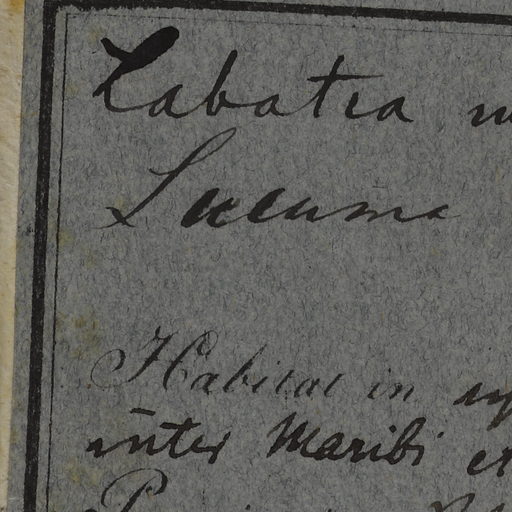 Labatia
Lucuma
Habitat in
inter Maribi et